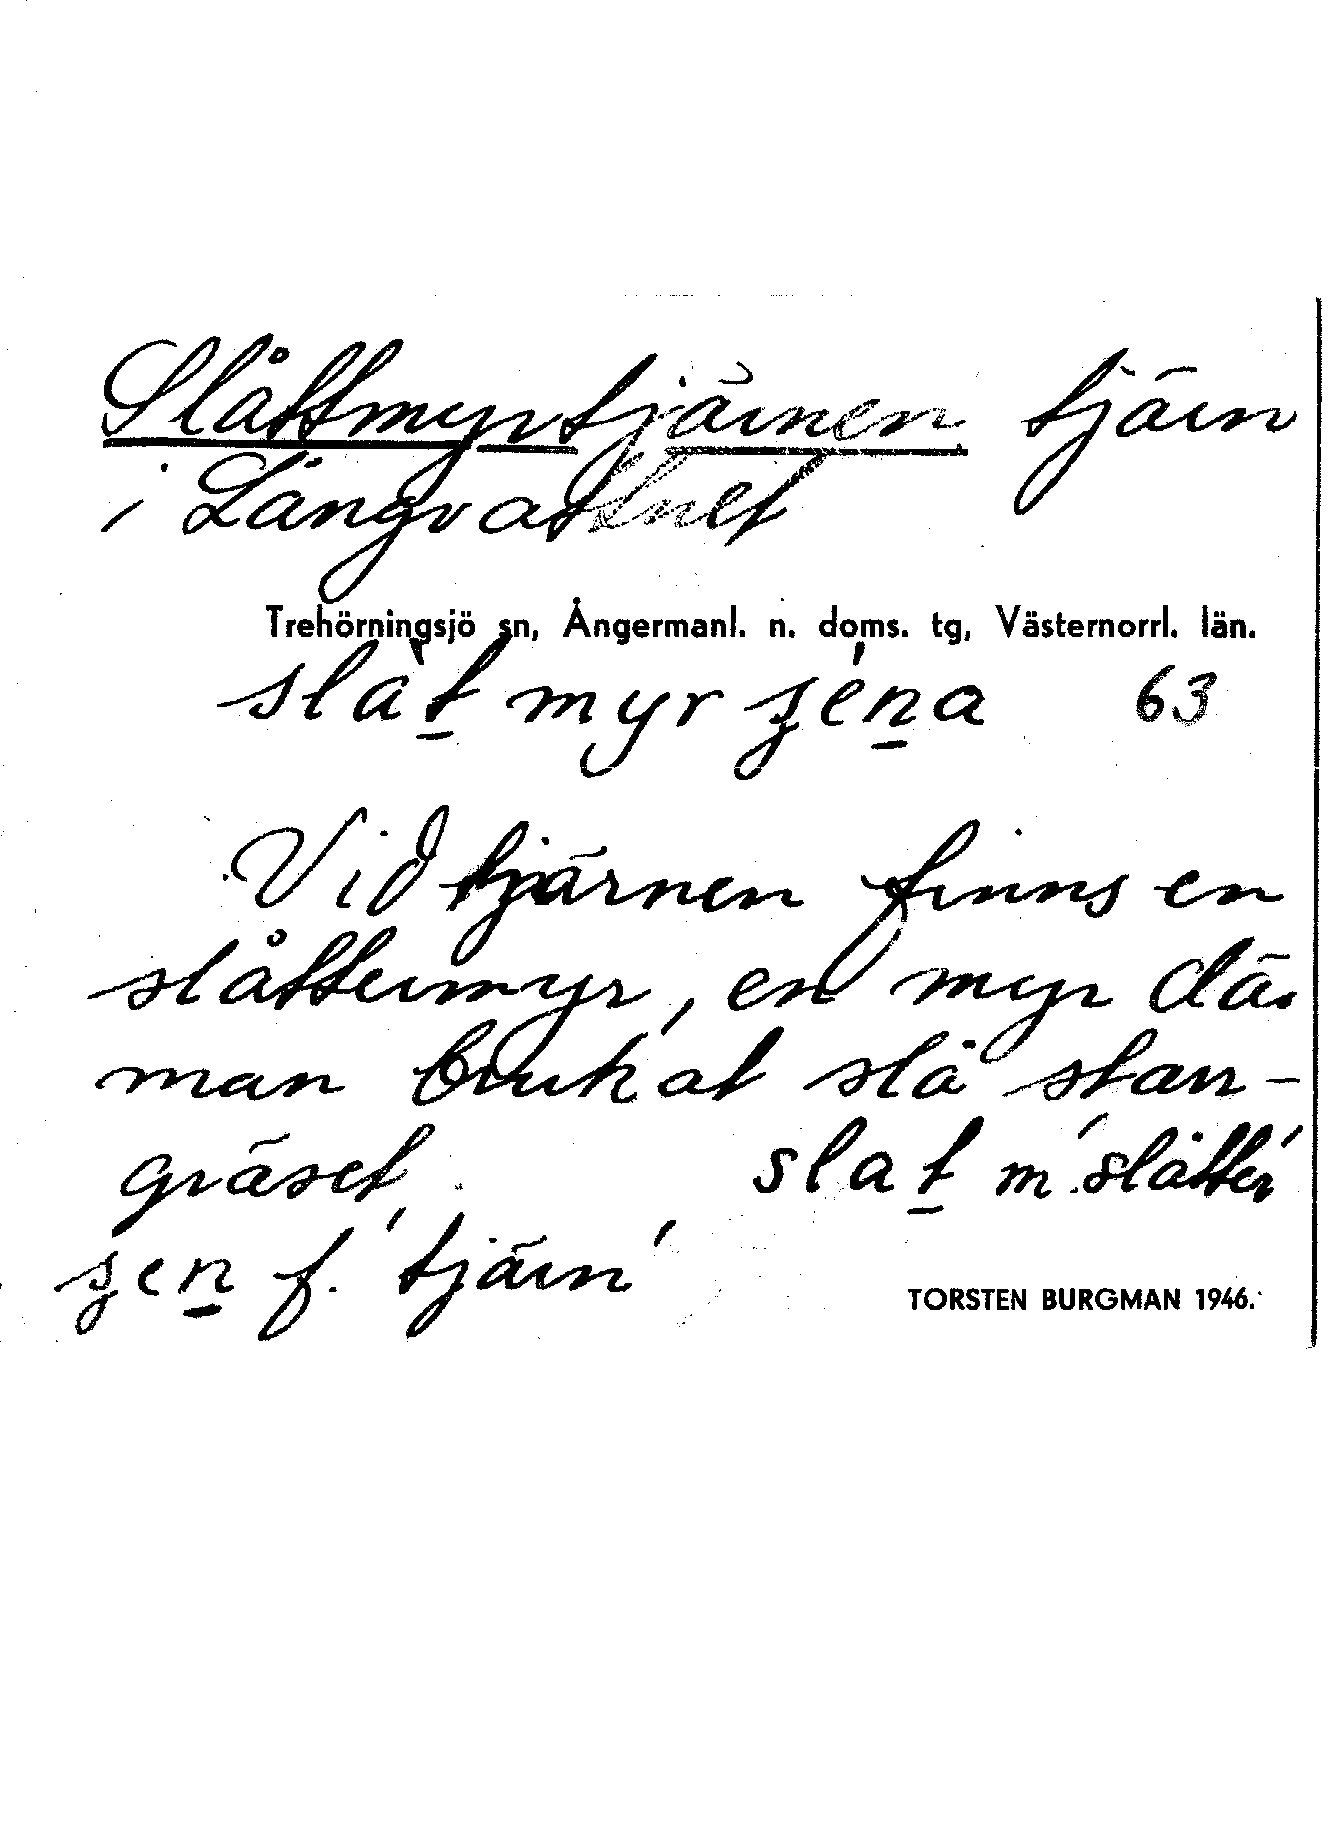 Slåttmyrtjärnen tjärn
i Långvattnet
Trehörningsjö sn, Ångermanl. n. doms. tg, Västernorrl. län.
slàt̲ myr ʒén̲a 63
Vid tjärnen finns en
slåttermyr, en myr där
man brukat slå starr-
gräset. slat̲ m 'slåtter'
ʒen̲ f. 'tjärn'
TORSTEN BURGMAN 1946.